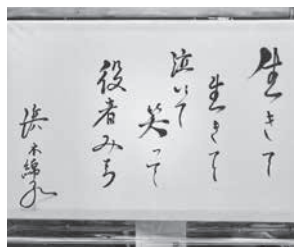 生きて
生きて
泣いて
笑って
役者みち
浜木綿子